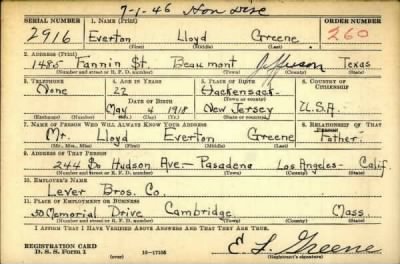 7-1-46 Hon Disc
SERIAL NUMBER 1. NAME (Print) ORDER NUMBER
2916 Everton Lloyd Greene 260
(First) (Middle) (Last)
2. ADDRESS (Print)
1485 Fannin St. Beaumont Jefferson Texas
(Number and street or R. F. D. number) (Town) (County) (State)
3. TELEPHONE 4. AGE IN YEARS 5. PLACE OF BIRTH 6. COUNTRY OF CITIZENSHIP
None 22 Hackensack
DATE OF BIRTH (Town or county)
May 4 1918 New Jersey U.S.A.
(Mo.) (Day) (Yr.) (State or country)
7. NAME OF PERSON WHO WILL ALWAYS KNOW YOUR ADDRESS 8. RELATIONSHIP OF THAT PERSON
Mr. Lloyd Everton Greene Father
(Mr., Mrs., Miss) (First) (Middle) (Last)
9. ADDRESS OF THAT PERSON
244 So Hudson Ave- Pasadena Los Angeles- Calif.
(Number and street or R. F. D. number) (Town) (County) (State)
10. EMPLOYER'S NAME
Lever Bros. Co.
11. PLACE OF EMPLOYMENT OR BUSINESS
50 Memorial Drive Cambridge Mass.
(Number and street or R. F. D. number) (Town) (County) (State)
I AFFIRM THAT I HAVE VERIFIED ABOVE ANSWERS AND THAT THEY ARE TRUE.
REGISTRATION CARD
D. S. S. Form 1 16-17105 E. L. Greene
(Registrant's signature)